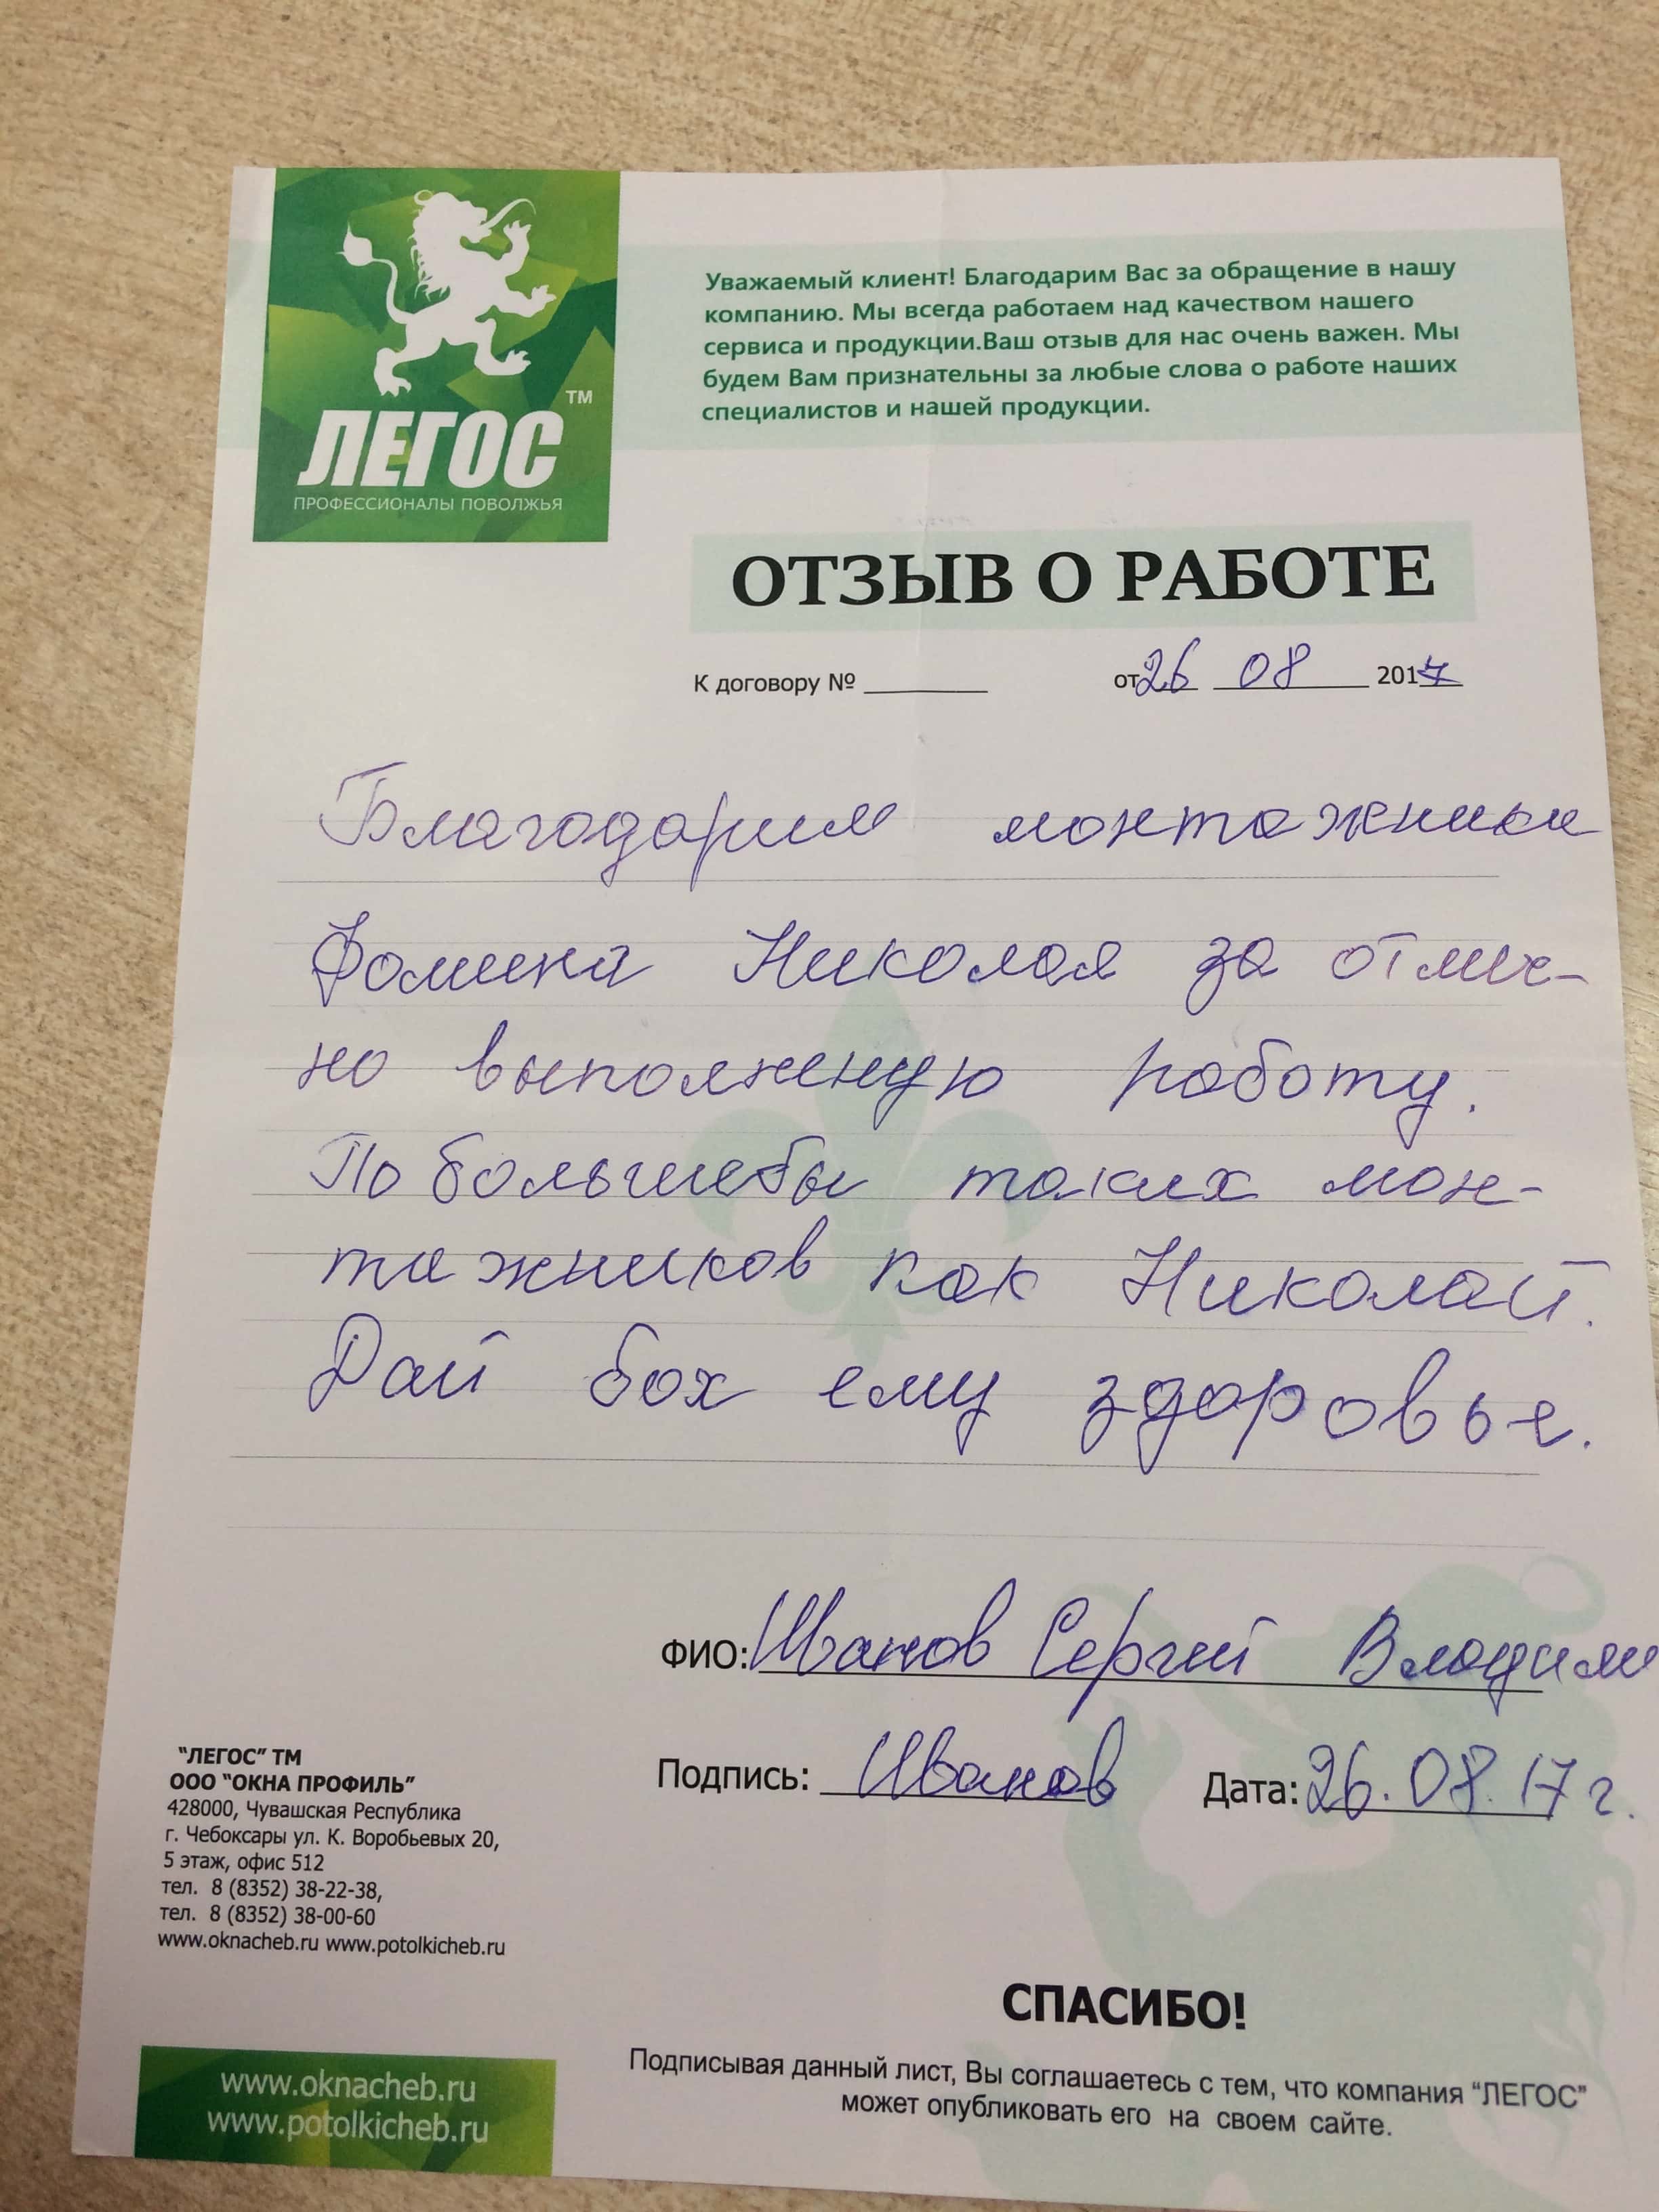 ЛЕГОС ™
ПРОФЕССИОНАЛЫ ПОВОЛЖЬЯ
Уважаемый клиент! Благодарим Вас за обращение в нашу
компанию. Мы всегда работаем над качеством нашего
сервиса и продукции.Ваш отзыв для нас очень важен. Мы
будем Вам признательны за любые слова о работе наших
специалистов и нашей продукции.
ОТЗЫВ О РАБОТЕ
К договору № от 26 08 2017
Благодарим монтажника
Фомина Николая за отлич-
но выполненую работу.
По большебы таких мон-
тажников как Николай.
Дай бох ему здоровье.
ФИО: Иванов Сергий Владими
Подпись: Иванов Дата: 26.08.17 г.
"ЛЕГОС" ТМ
ООО "ОКНА ПРОФИЛЬ"
428000, Чувашская Республика
г. Чебоксары ул. К. Воробьевых 20,
5 этаж, офис 512
тел. 8 (8352) 38-22-38,
тел. 8 (8352) 38-00-60
www.oknacheb.ru www.potolkicheb.ru
СПАСИБО!
Подписывая данный лист, Вы соглашаетесь с тем, что компания "ЛЕГОС"
может опубликовать его на своем сайте.
www.oknacheb.ru
www.potolkicheb.ru